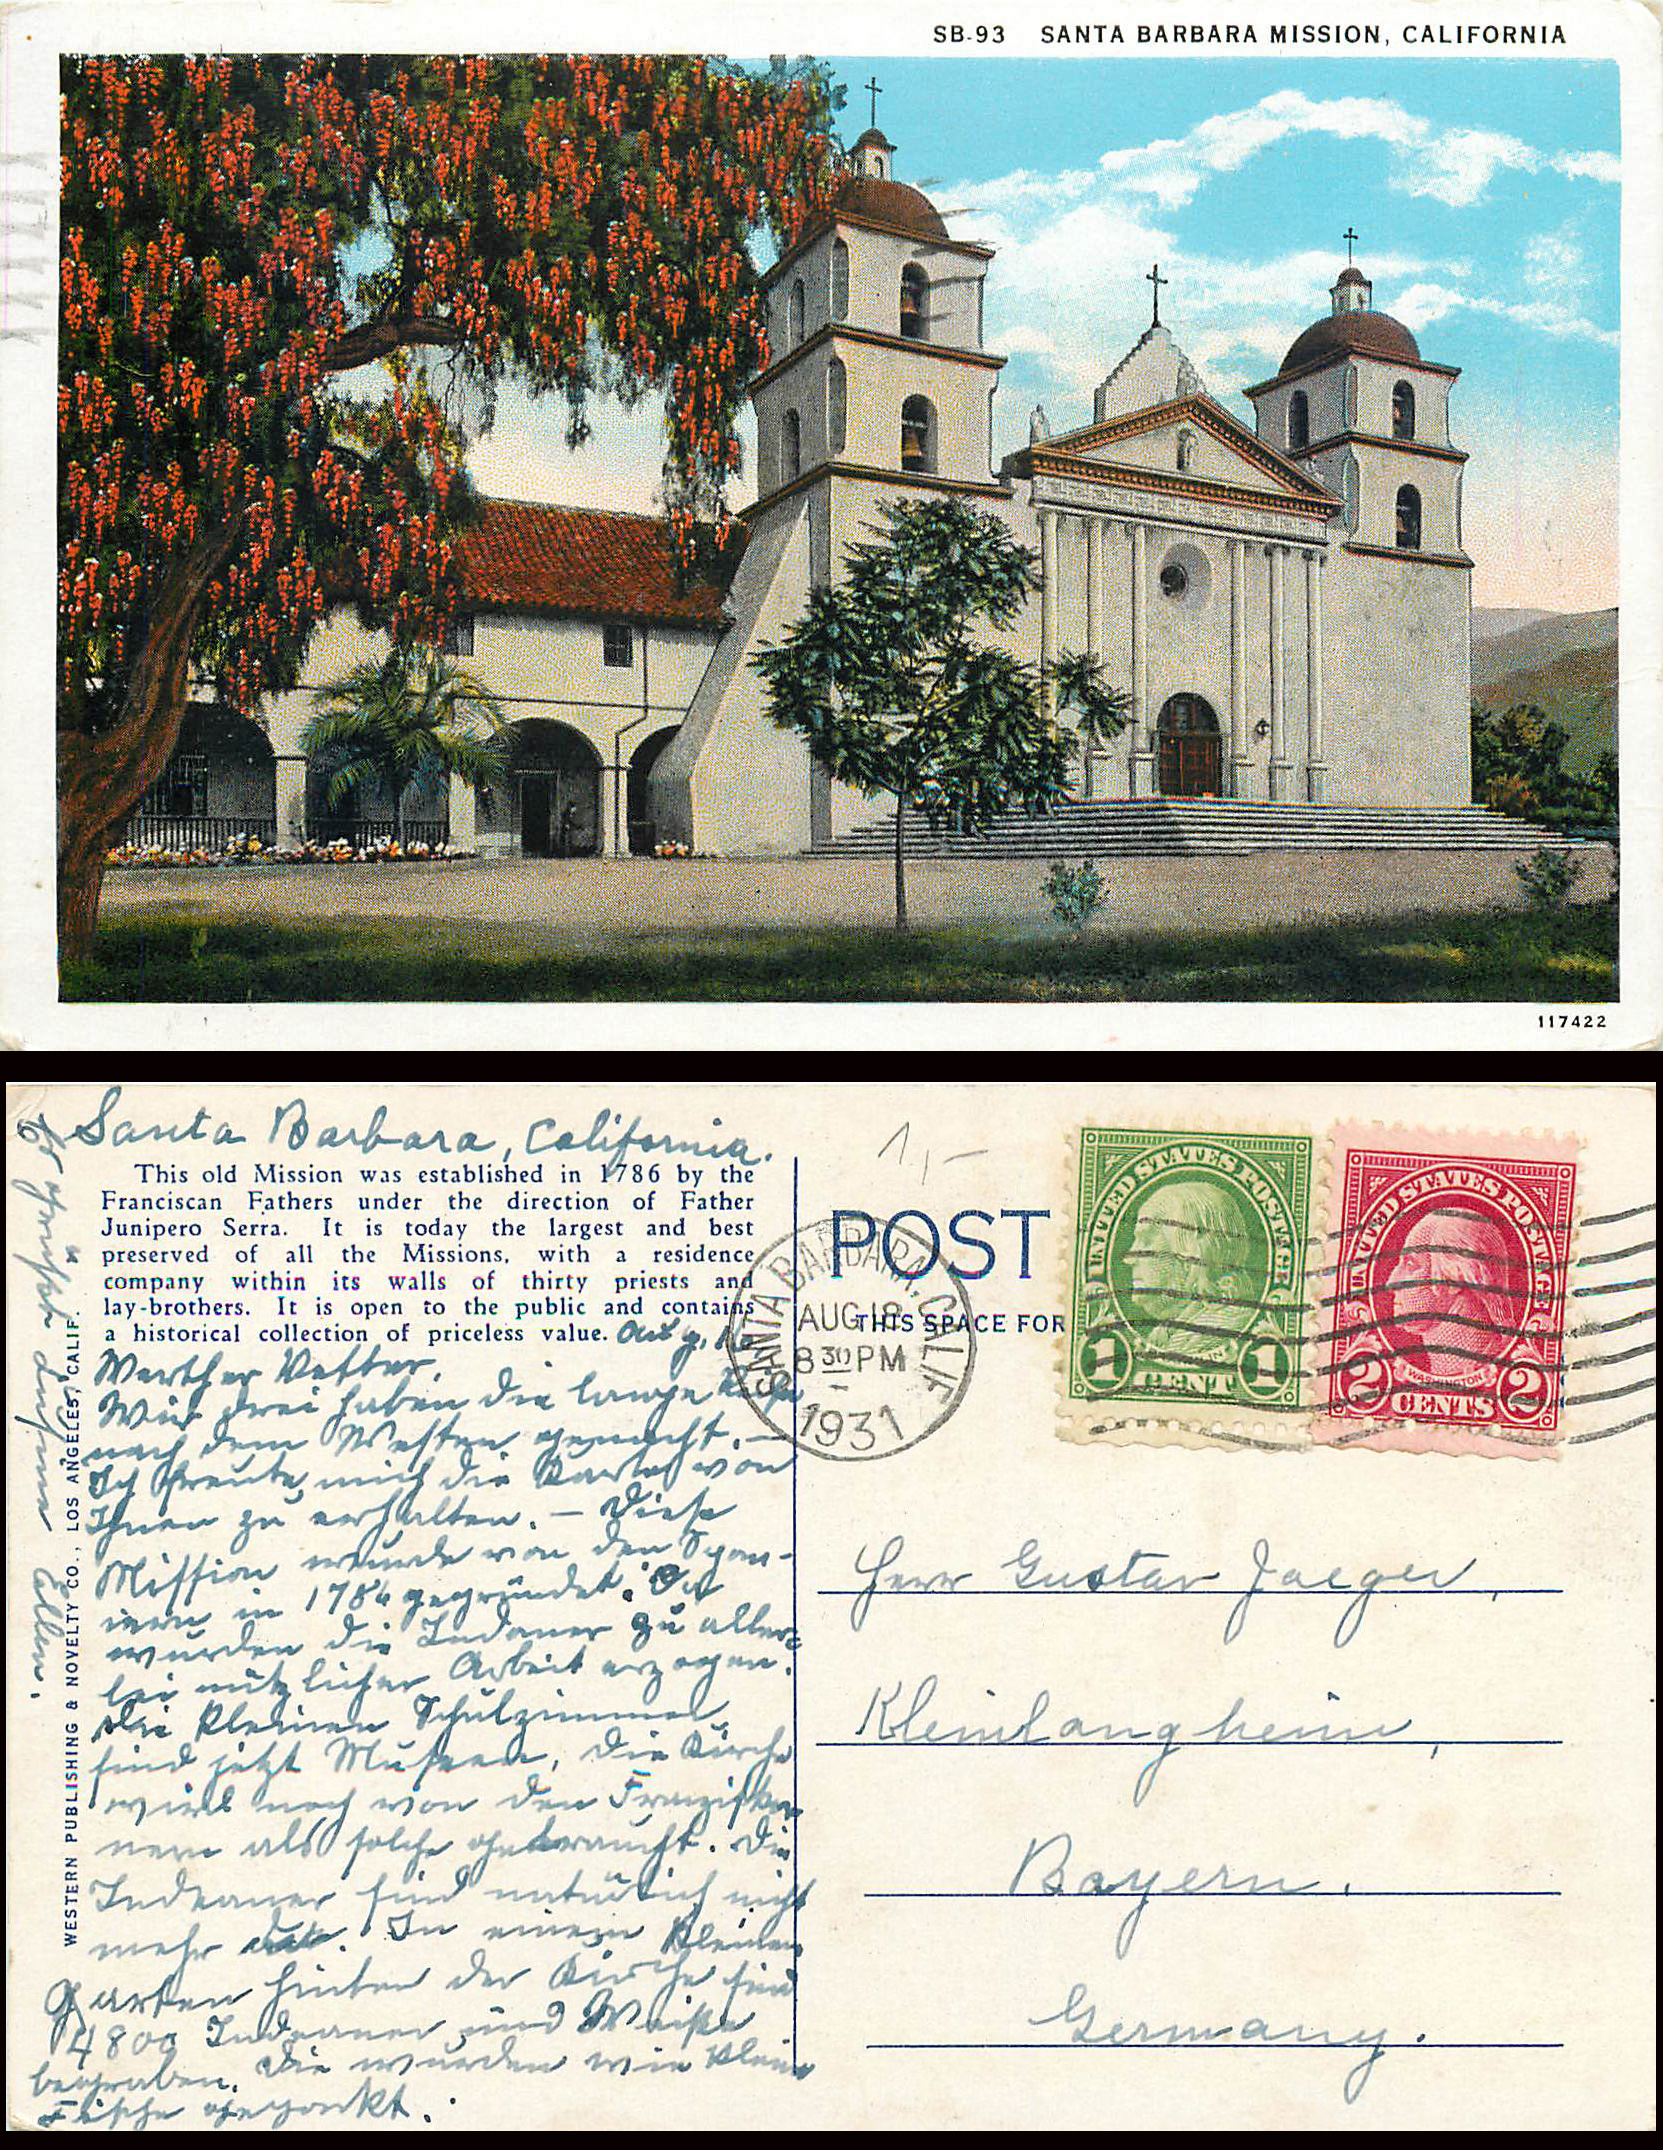 SB-93 SANTA BARBARA MISSION, CALIFORNIA
117422
Santa Barbara, California.
This old Mission was established in 1786 by the
Franciscan Fathers under the direction of Father
Junipero Serra. It is today the largest and best
preserved of all the Missions, with a residence
company within its walls of thirty priests and
lay-brothers. It is open to the public and contains
a historical collection of priceless value.
Aug.
Werther Vetter,
Wir drei haben die lange Reise
nach dem Westen gemacht. —
Ich freute mich die Karte von
Ihnen zu erhalten. — Diese
Mission wurde von den Span-
iern in 1786 gegründet. Da
wurden die Indaner zu aller-
lei nützlicher Arbeit erzogen.
Die kleinen Schulzimmer
sind jetzt Museen, die Kirche
wird noch von den Franziska
nern als solche gebraucht. Die
Indeaner sind natürlich nicht
mehr da. In einem kleinen
Garten hinter der Kirche sind
4800 Indeaner und Weiße
begraben. Die wurden wie kleine
Fische gepackt.
So grüßt Luise Ellen.
WESTERN PUBLISHING & NOVELTY CO., LOS ANGELES, CALIF.
1,—
POST
THIS SPACE FOR
SANTA BARBARA, CALIF.
AUG 18
8 30 PM
1931
UNITED STATES POSTAGE
1 CENT 1
UNITED STATES POSTAGE
WASHINGTON
2 CENTS 2
Herr Gustav Jaeger,
Kleinlangheim,
Bayern.
Germany.